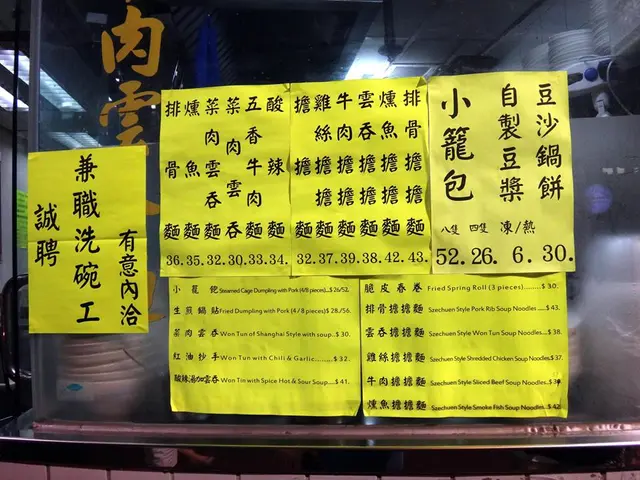 肉雲
誠聘
兼職洗碗工
有意內洽
排骨麵 36.
燻魚麵 35.
菜肉雲吞麵 32.
菜肉雲吞 30.
五香牛肉麵 33.
酸辣麵 34.
擔擔麵 32.
雞絲擔擔麵 37.
牛肉擔擔麵 39.
雲吞擔擔麵 38.
燻魚擔擔麵 42.
排骨擔擔麵 43.
小籠包
八隻 四隻
52. 26.
自製豆漿
凍/熱
6.
豆沙鍋餅
30.
小籠飽 Steamed Cage Dumpling with Pork (4/8 pieces)...$26/52.
生煎鍋貼 Fried Dumpling with Pork (4/8 pieces)$28/56.
菜肉雲吞 Won Tun of Shanghai Style with soup..$30.
紅油抄手 Won Tun with Chili & Garlic........$32.
酸辣湯加雲吞 Won Tin with Spice Hot & Sour Soup....$41.
脆皮春卷 Fried Spring Roll (3 pieces)........$30.
排骨擔擔麵 Szechuen Style Pork Rib Soup Noodles....$43.
雲吞擔擔麵 Szechuen Style Won Tun Soup Noodles....$38.
雞絲擔擔麵 Szechuen Style Shredded Chicken Soup Noodles.$37.
牛肉擔擔麵 Szechuen Style Sliced Beef Soup Noodles..
燻魚擔擔麵 Szechuen Style Smoke Fish Soup Noodles....$42.